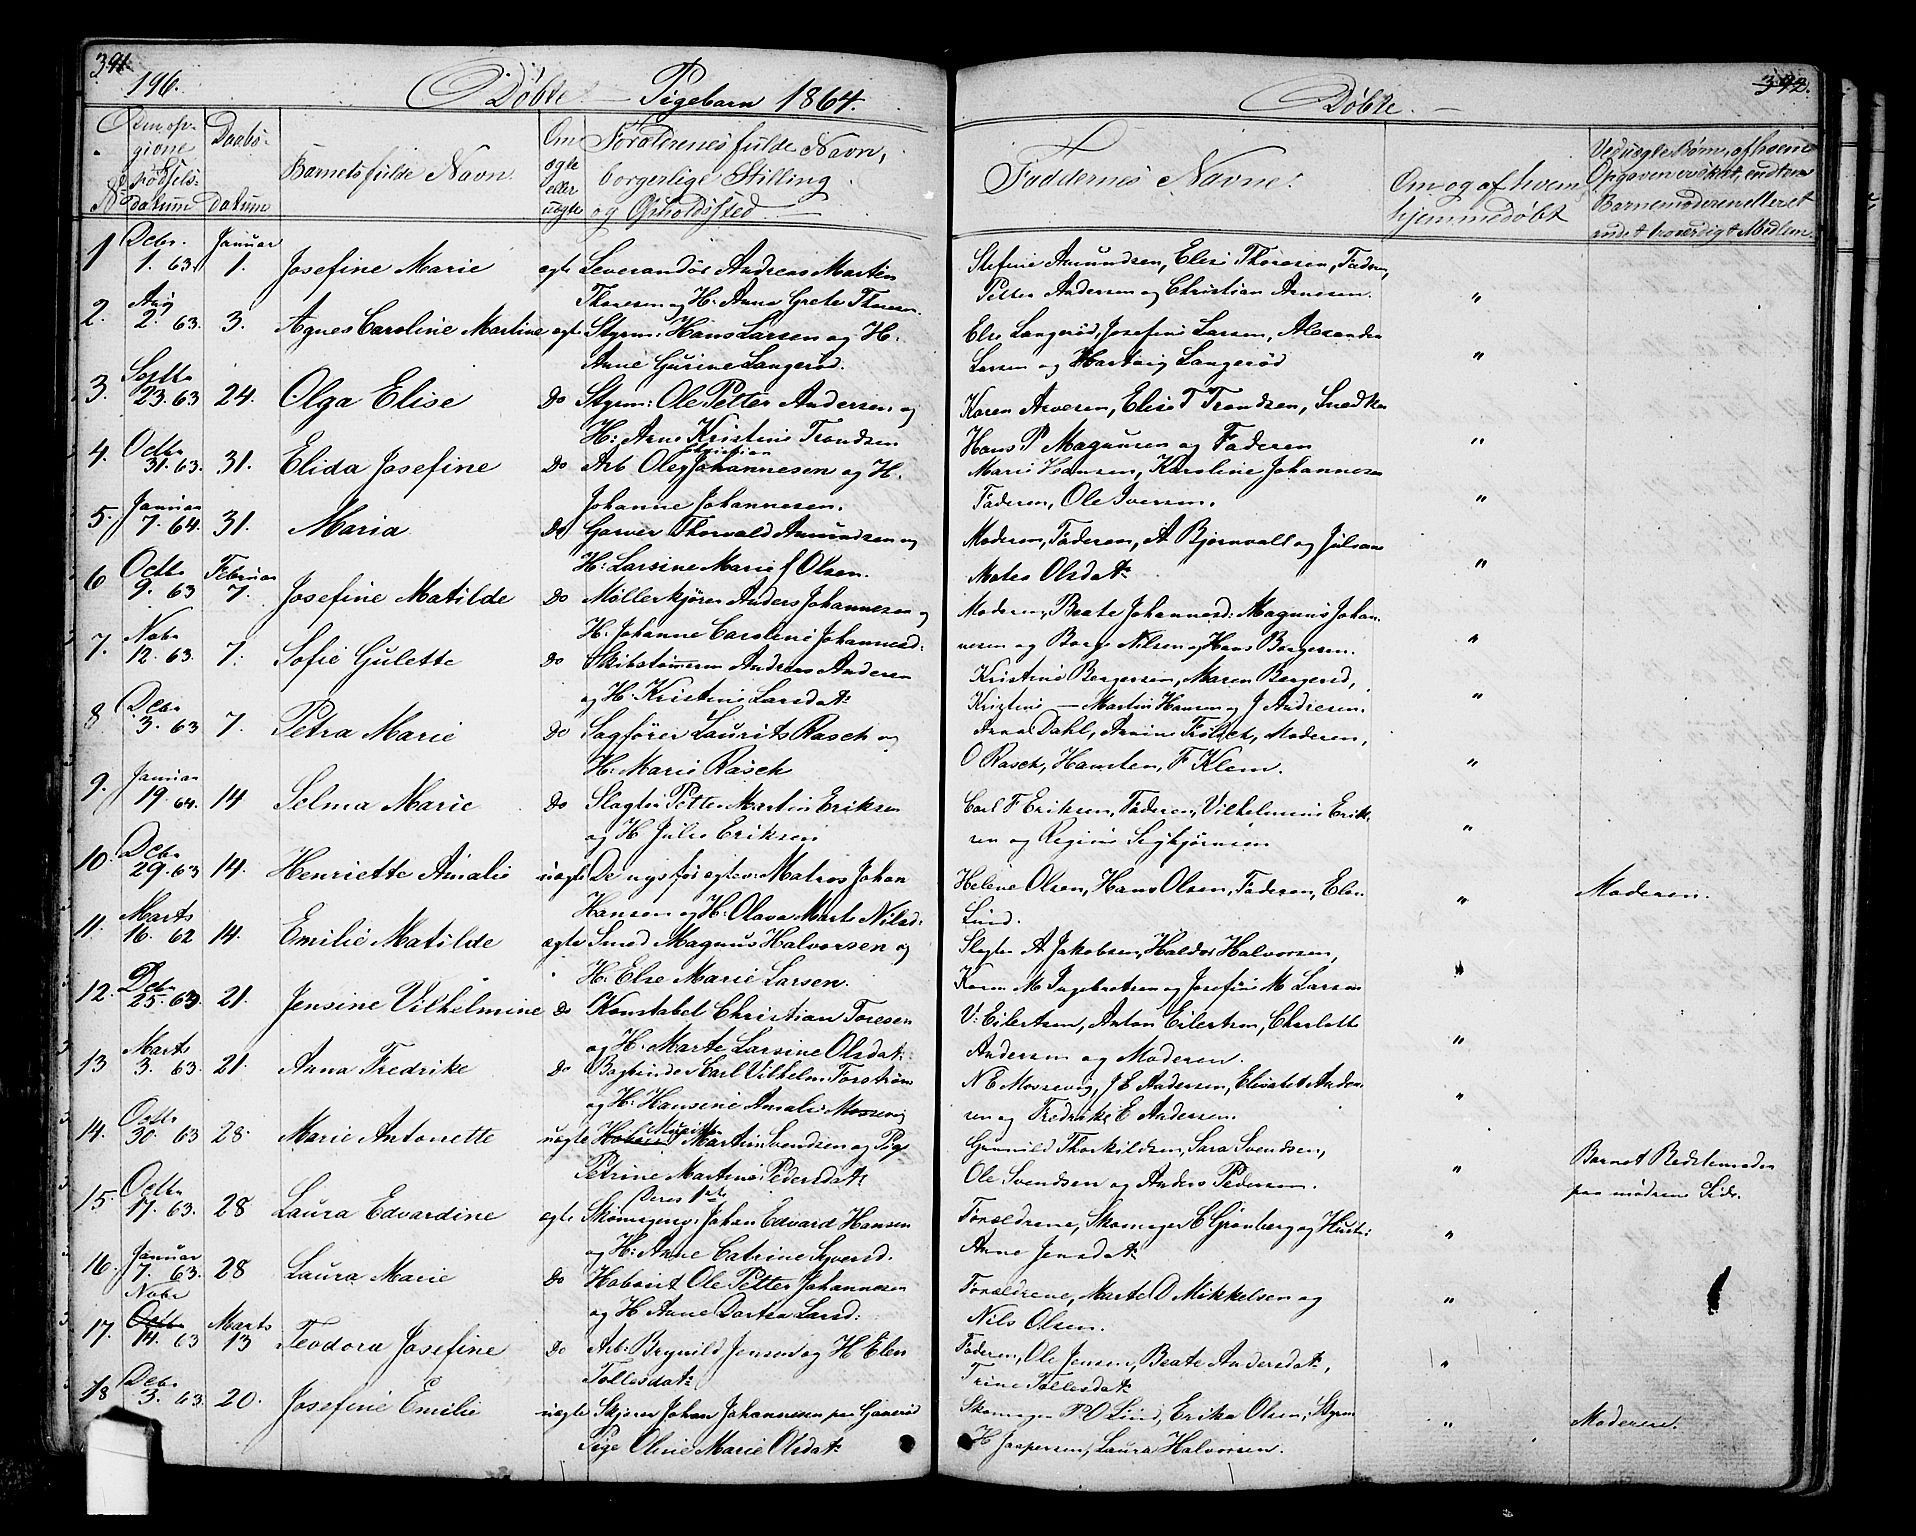 391.
196.
Døbte — Pigebarn 1864.
Døbte. —
392.
No
Den opgivne Fødselsdatum
Daabsdatum
Barnets fulde Navn
Om ægte eller uægte
Forældrenes fulde Navn, borgerlige Stilling og Opholdssted
Faddernes Navne.
Om og af hvem hjemmedøbt
1 Decbr. 1. 63. Januar 1. Josefine Marie ægte Leverandør Andreas Martin
Thoresen og H: Anna Grete Thoresen.
Stefine Amundsen, Elise Thoresen, Faderen,
Petter Andersen og Christian Arnesen. "
2. Aug 2. 63. 3. Agnes Caroline Martine ægte Styrm: Hans Larsen og H.
Anne Gurine Langerød.
Else Langerød, Josefine Larsen, Alexander
Larsen og Hartvig Langerød "
3. Septbr 23. 63 24. Olga Elise Do Styrm: Ole Petter Andersen og
H: Anne Kristine Trondsen
Karen Arvesen, Elise T Trondsen, Snedker
Hans P Magnusen og Faderen "
4. Octbr 31. 63. 31. Elida Josefine Do Arb Ole Christian Johannesen og H.
Johanne Johannesen.
Marie Hansen, Karoline Johannesen
Faderen, Ole Iversen. "
5. Januar 7. 64. 31. Maria Do Garver Thorvald Amundsen og
H: Larsine Marie f Olsen.
Moderen, Faderen, A Bjørnvall og
Olsdat: "
6 Octbr 9. 63 Februar 7. Josefine Matilde Do Møllerkjører Anders Johannesen og
H. Johanne Caroline Johannesd:
Moderen, Beate Johannesd: Magnus Johannesen
og Borge Nilsen og Hans Borgersen. "
7. Novbr 12. 63. 7. Sofie Gulette Do Skibstømmerm Andreas Andersen
og H. Kristine Larsdat:
Kristine Borgersen, Maren Borgersd,
Kristine — Martin Hansen og J Andresen. "
8 Decbr 3. 63 7. Petra Marie Do Sagfører Laurits Rasch og
H: Marie Rasch
Anna Dahl, Moderen,
O Rasch, F Klem. "
9. Januar 19. 64. 14 Selma Marie Do Slagter Petter Martin Eriksen
og H Julie Eriksen
Carl F Eriksen, Faderen, Vilhelmine Eriksen
og Regine Sigbjørnsen "
10. Decbr 29. 63 14. Henriette Amalie uægte De nysforægtev: Matros Johan
Hansen og H: Olava Marte Nilsd:
Helene Olsen, Hans Olsen, Faderen, Elen
Lund. " Moderen.
11. Marts 16. 62 14. Emilie Matilde ægte Smed Magnus Halvorsen og
H. Else Marie Larsen.
Slagter A Jakobsen, Haldor Halvorsen,
Karen M Ingebretsen og Josefine M Larsen "
12. Decbr 25. 63. 21. Jensine Vilhelmine Do Konstabel Christian Toresen
og H. Marte Larsine Olsdat:
V: Eilertsen, Anton Eilertsen, Charlotte
Andersen og Moderen. "
13 Marts 3. 63. 21. Anna Fredrike Do Bogbinder Carl Vilhelm Forstrøm
og H: Hansine Amalie Mossevig
N E Mossevig, J E Andersen, Elisabet Andersen
og Fredrikke E Andersen. "
14. Octbr 30. 63 28. Marie Antonette uægte Musiker Martin Svendsen og Pige
Petrine Martine Pedersdat:
Deres 1ste
Gunnild Thorkildsen, Sara Svendsen,
Ole Svendsen og Anders Pedersen. " Barnet Bedstemoder
paa modrene Side.
15. Octbr 17. 63. 28 Laura Edvardine ægte Skomagersv: Johan Edvard Hansen
og H: Anne Catrine Syversd.
Forældrene, Skomager C Grønberg og Hustru
Anne Jensdat: "
16. Januar 7. 63. 28 Laura Marie Do Hoboist Ole Petter Johannesen
og H Anne Dortea Larsd:
Forældrene, Marte O Mikkelsen og
Nils Olsen. "
17. Novbr Octbr 14. 63 Marts 13 Teodora Josefine Do Arb: Brynild Jensen og H Elen
Tollesdat:
Faderen, Ole Jensen, Beate Andersdat:,
Trine Tollesdat: "
18 Decbr 3. 63. 20. Josefine Emilie uægte Skjører Johan Johannesen paa
Pige Oline Marie Olsdat:
Skomager P O Lund, Erika Olsen, Styrm
H Jaspersen, Laura Halvorsen. " Moderen.